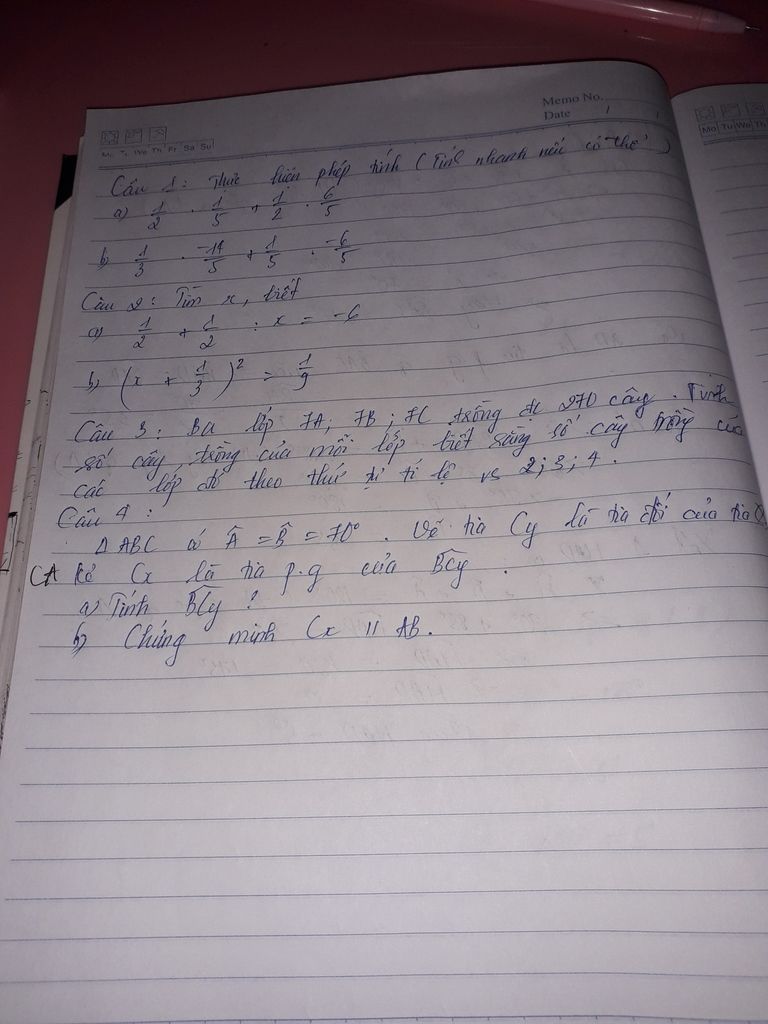 Memo No.
Date / /
Mo Tu We Th Fr Sa Su
Mo Tu We Th
Câu 1: Thực hiện phép tính (Tính nhanh nếu có thể)
a) 1/2 . 1/5 + 1/2 . 6/5
b) 1/3 . -14/5 + 1/5 . -6/5
Câu 2: Tìm x, biết
a) 1/2 + 1/2 : x = -6
b) (x + 1/3)² = 1/9
Câu 3: Ba lớp 7A; 7B; 7C trồng đc 270 cây. Tính
số cây trồng của mỗi lớp biết rằng số cây trồng của
các lớp đó theo thứ tự tỉ lệ vs 2; 3; 4.
Câu 4:
Δ ABC có Â = B̂ = 70°. Vẽ tia Cy là tia đối của tia
CA Kẻ Cx là tia p.g của BCy.
a) Tính BCy ?
b) Chứng minh Cx // AB.